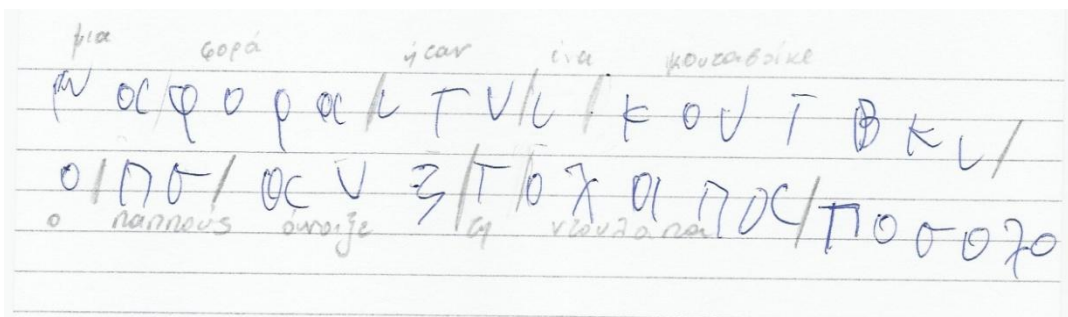 μια φορά ήσαν ένα κουταβάκι
Ν α/φ ο ρ α/ι τ ν/ι/ κ ο υ τ β κ ι/
ο/π σ/ α ν ξ/τ/ο λ α π α/π ο σ ο λ ο
ο παππούς άνοιξε τη ντουλάπα